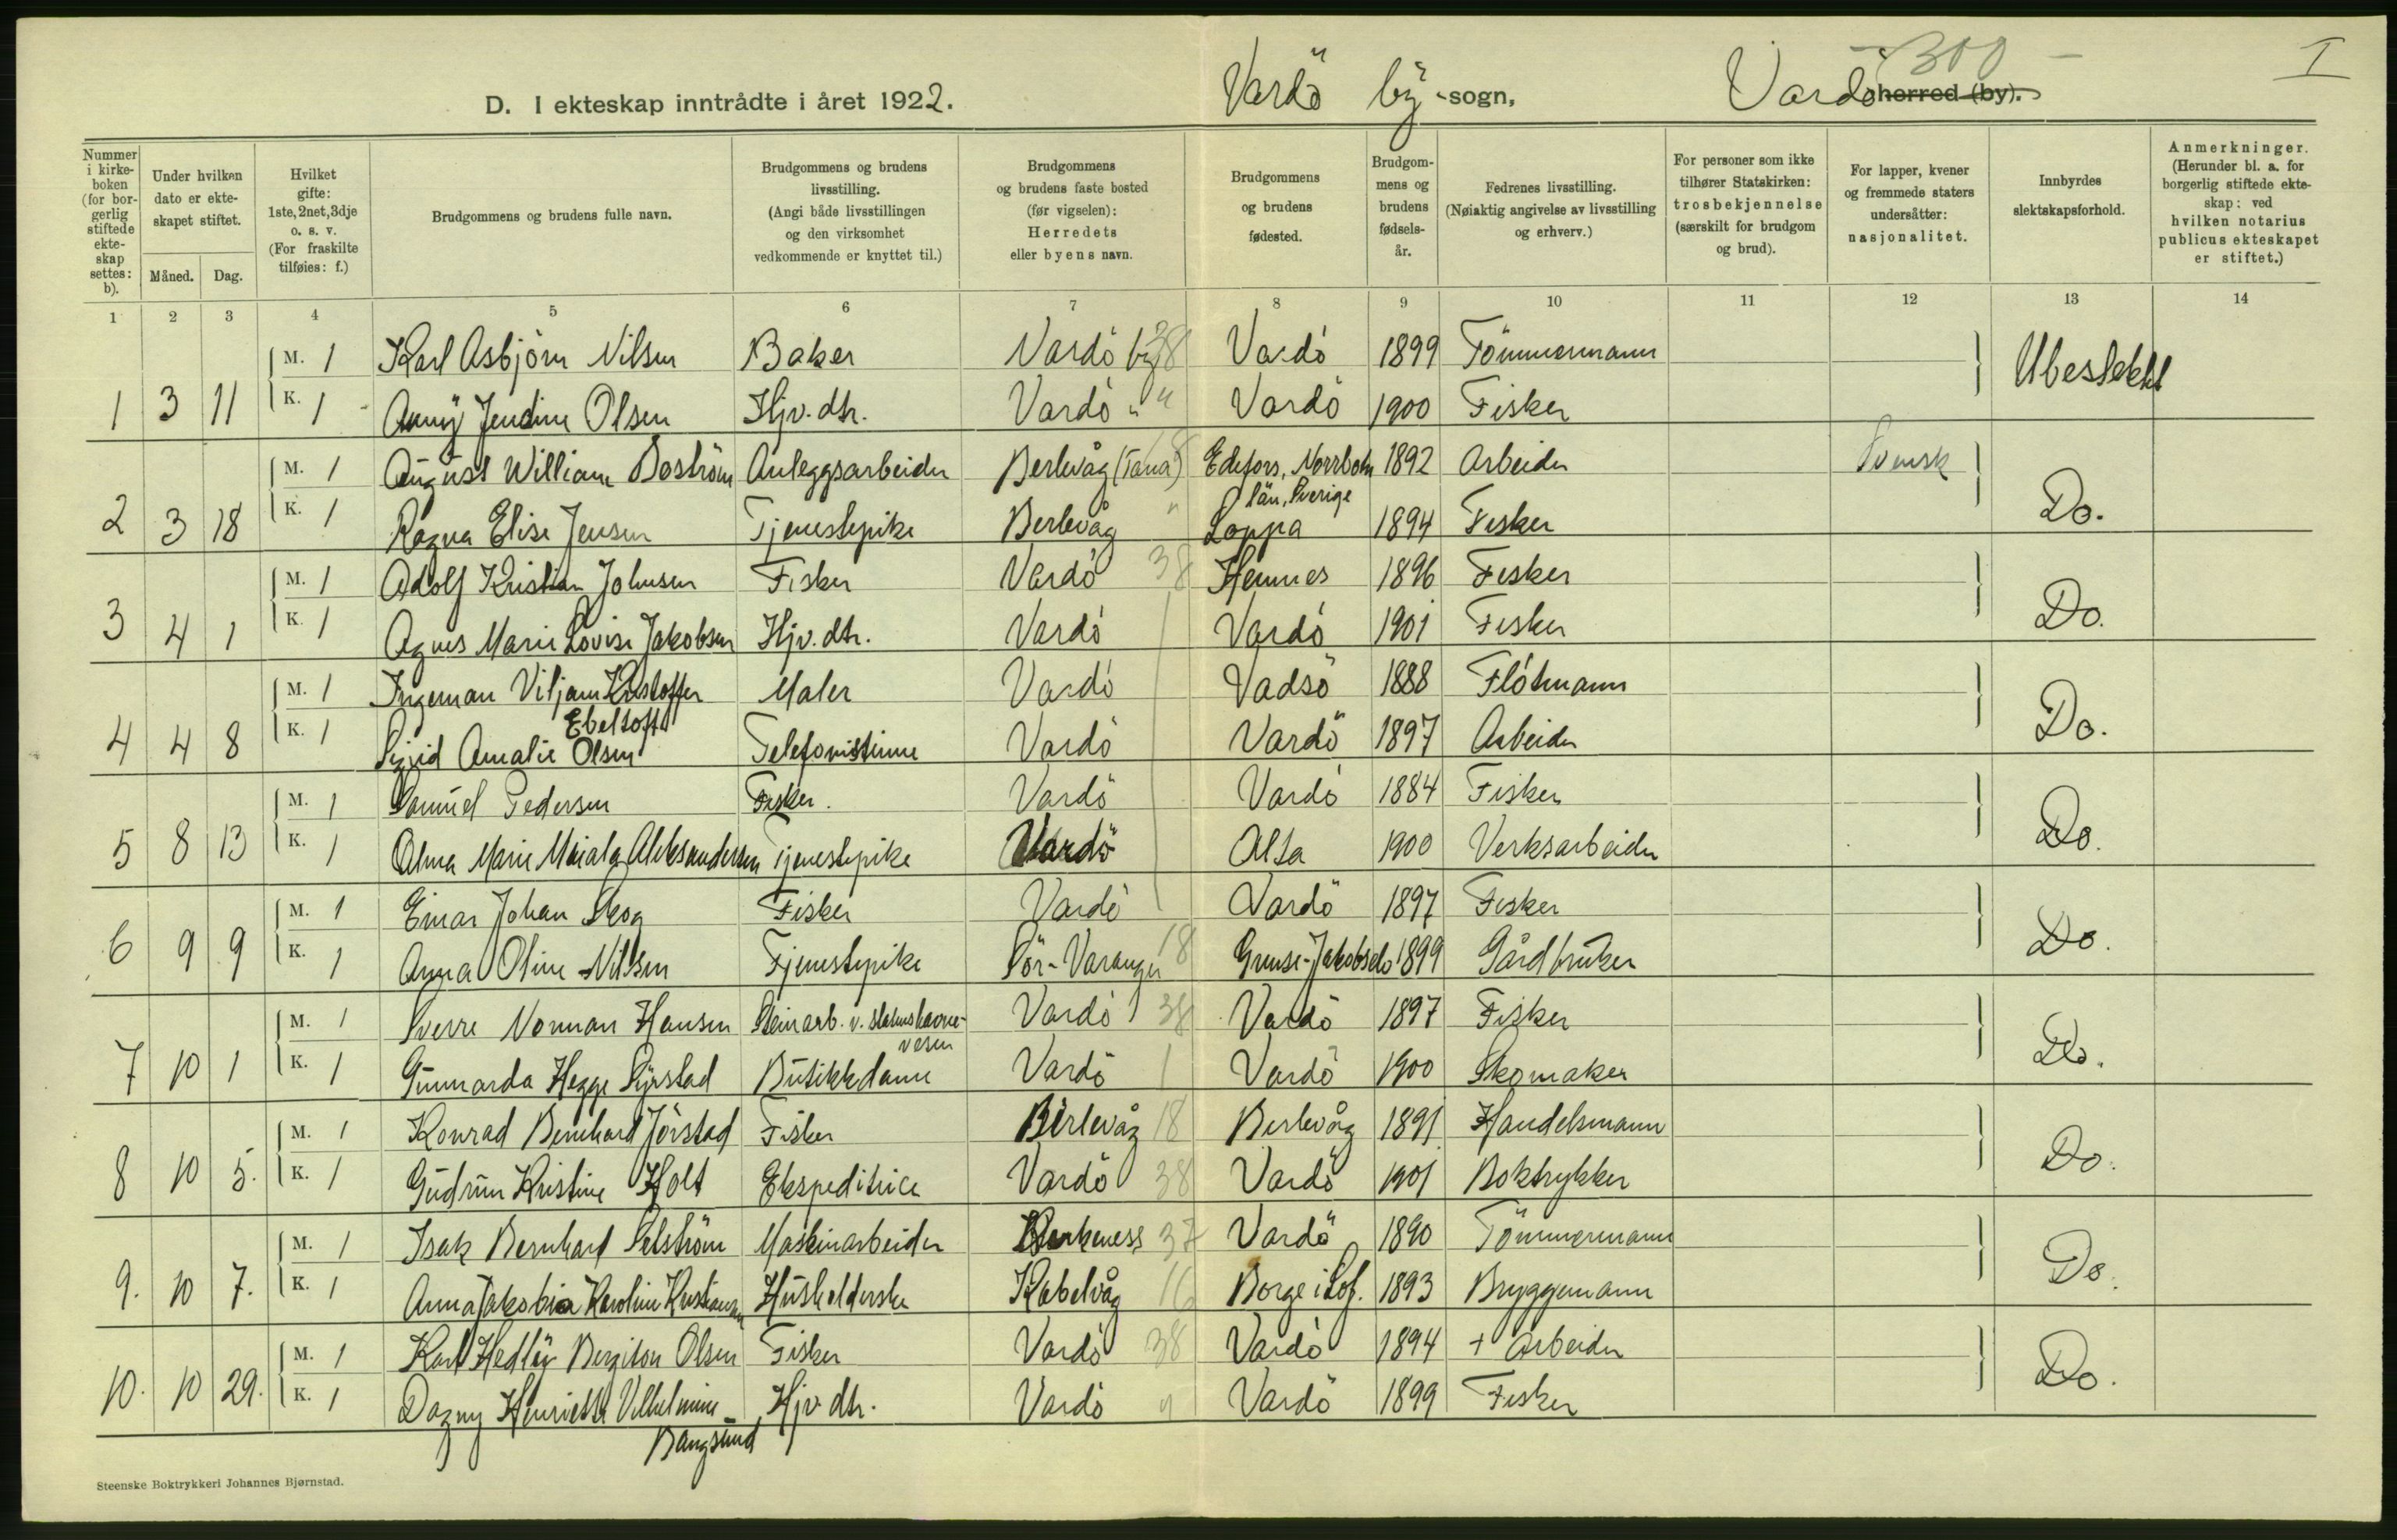 300
I
D. I ekteskap inntrådte i året 1922. Vardö by -sogn, Vardö herred (by).
Nummer i kirkeboken (for borgerlig stiftede ekteskap settes: b).
Under hvilken dato er ekteskapet stiftet.
Måned. Dag.
Hvilket gifte: 1ste, 2net, 3dje o. s. v. (For fraskilte tilføies: f.)
Brudgommens og brudens fulle navn.
Brudgommens og brudens livsstilling. (Angi både livsstillingen og den virksomhet vedkommende er knyttet til.)
Brudgommens og brudens faste bosted (før vigselen): Herredets eller byens navn.
Brudgommens og brudens fødested.
Brudgommens og brudens fødselsår.
Fedrenes livsstilling. (Nøiaktig angivelse av livsstilling og erhverv.)
For personer som ikke tilhører Statskirken: trosbekjennelse (særskilt for brudgom og brud).
For lapper, kvener og fremmede staters undersåtter: nasjonalitet.
Innbyrdes slektskapsforhold.
Anmerkninger. (Herunder bl. a. for borgerlig stiftede ekteskap: ved hvilken notarius publicus ekteskapet er stiftet.)
1 2 3 4 5 6 7 8 9 10 11 12 13 14
M. 1 Karl Asbjörn Nilsen Baker Vardö by 38 Vardö 1899 Tömmermann Ubeslektet
1 3 11 K. 1 Anny Jendine Olsen Hjv. dtr. Vardö " " Vardö 1900 Fisker
M. 1 August William Boström Anleggsarbeider Berlevåg (Tana) 18 Edefors, Norrboten län, Sverige 1892 Arbeider Svensk Do.
2 3 18 K. 1 Ragna Elise Jensen Tjenestepike Berlevåg " Loppa 1894 Fisker
M. 1 Adolf Kristian Johnsen Fisker Vardö 38 Hemnes 1896 Fisker Do.
3 4 1 K. 1 Agnes Marie Lovise Jakobsen Hjv. dtr. Vardö Vardö 1901 Fisker
M. 1 Ingeman Viljam Kristoffer Ebeltoft Maler Vardö Vadsö 1888 Flötmann Do.
4 4 8 K. 1 Sigrid Amalie Olsen Telefonistinne Vardö Vardö 1897 Arbeider
M. 1 Samuel Pedersen Fisker. Vardö Vardö 1884 Fisker Do.
5 8 13 K. 1 Alma Marie Maiala Aleksandersen Tjenestepike Vardö Alta 1900 Verksarbeider
M. 1 Einar Johan Skog Fisker Vardö Vardö 1897 Fisker Do.
6 9 9 K. 1 Anna Oline Nilsen Tjenestepike Sör-Varanger 18 Grense-Jakobselv 1899 Gårdbruker
M. 1 Sverre Norman Hansen Steinarb. v. statens havnevesen Vardö 38 Vardö 1897 Fisker Do.
7 10 1 K. 1 Gunnarda Hegge Syrstad Butikkdame Vardö Vardö 1900 Skomaker
M. 1 Konrad Bernhard Jörstad Fisker Berlevåg 18 Berlevåg 1891 Handelsmann Do.
8 10 5. K. 1 Gudrun Kristine Holt Ekspeditrice Vardö 38 Vardö 1901 Boktrykker
M. 1 Isak Bernhard Selström Maskinarbeider Kirkenes 37 Vardö 1890 Tömmermann Do.
9. 10 7. K. 1 Anna Jakobia Karoline Kristiansen Husholderske Kabelvåg 16 Borge i Lof. 1893 Bryggemann
M. 1 Karl Hedley Bergiton Olsen Fisker Vardö 38 Vardö 1894 + Arbeider Do.
10. 10 29. K. 1 Dagny Henriette Vilhelmine Bangsund Hjv. dtr. Vardö " Vardö 1899 Fisker
Steenske Boktrykkeri Johannes Bjørnstad.